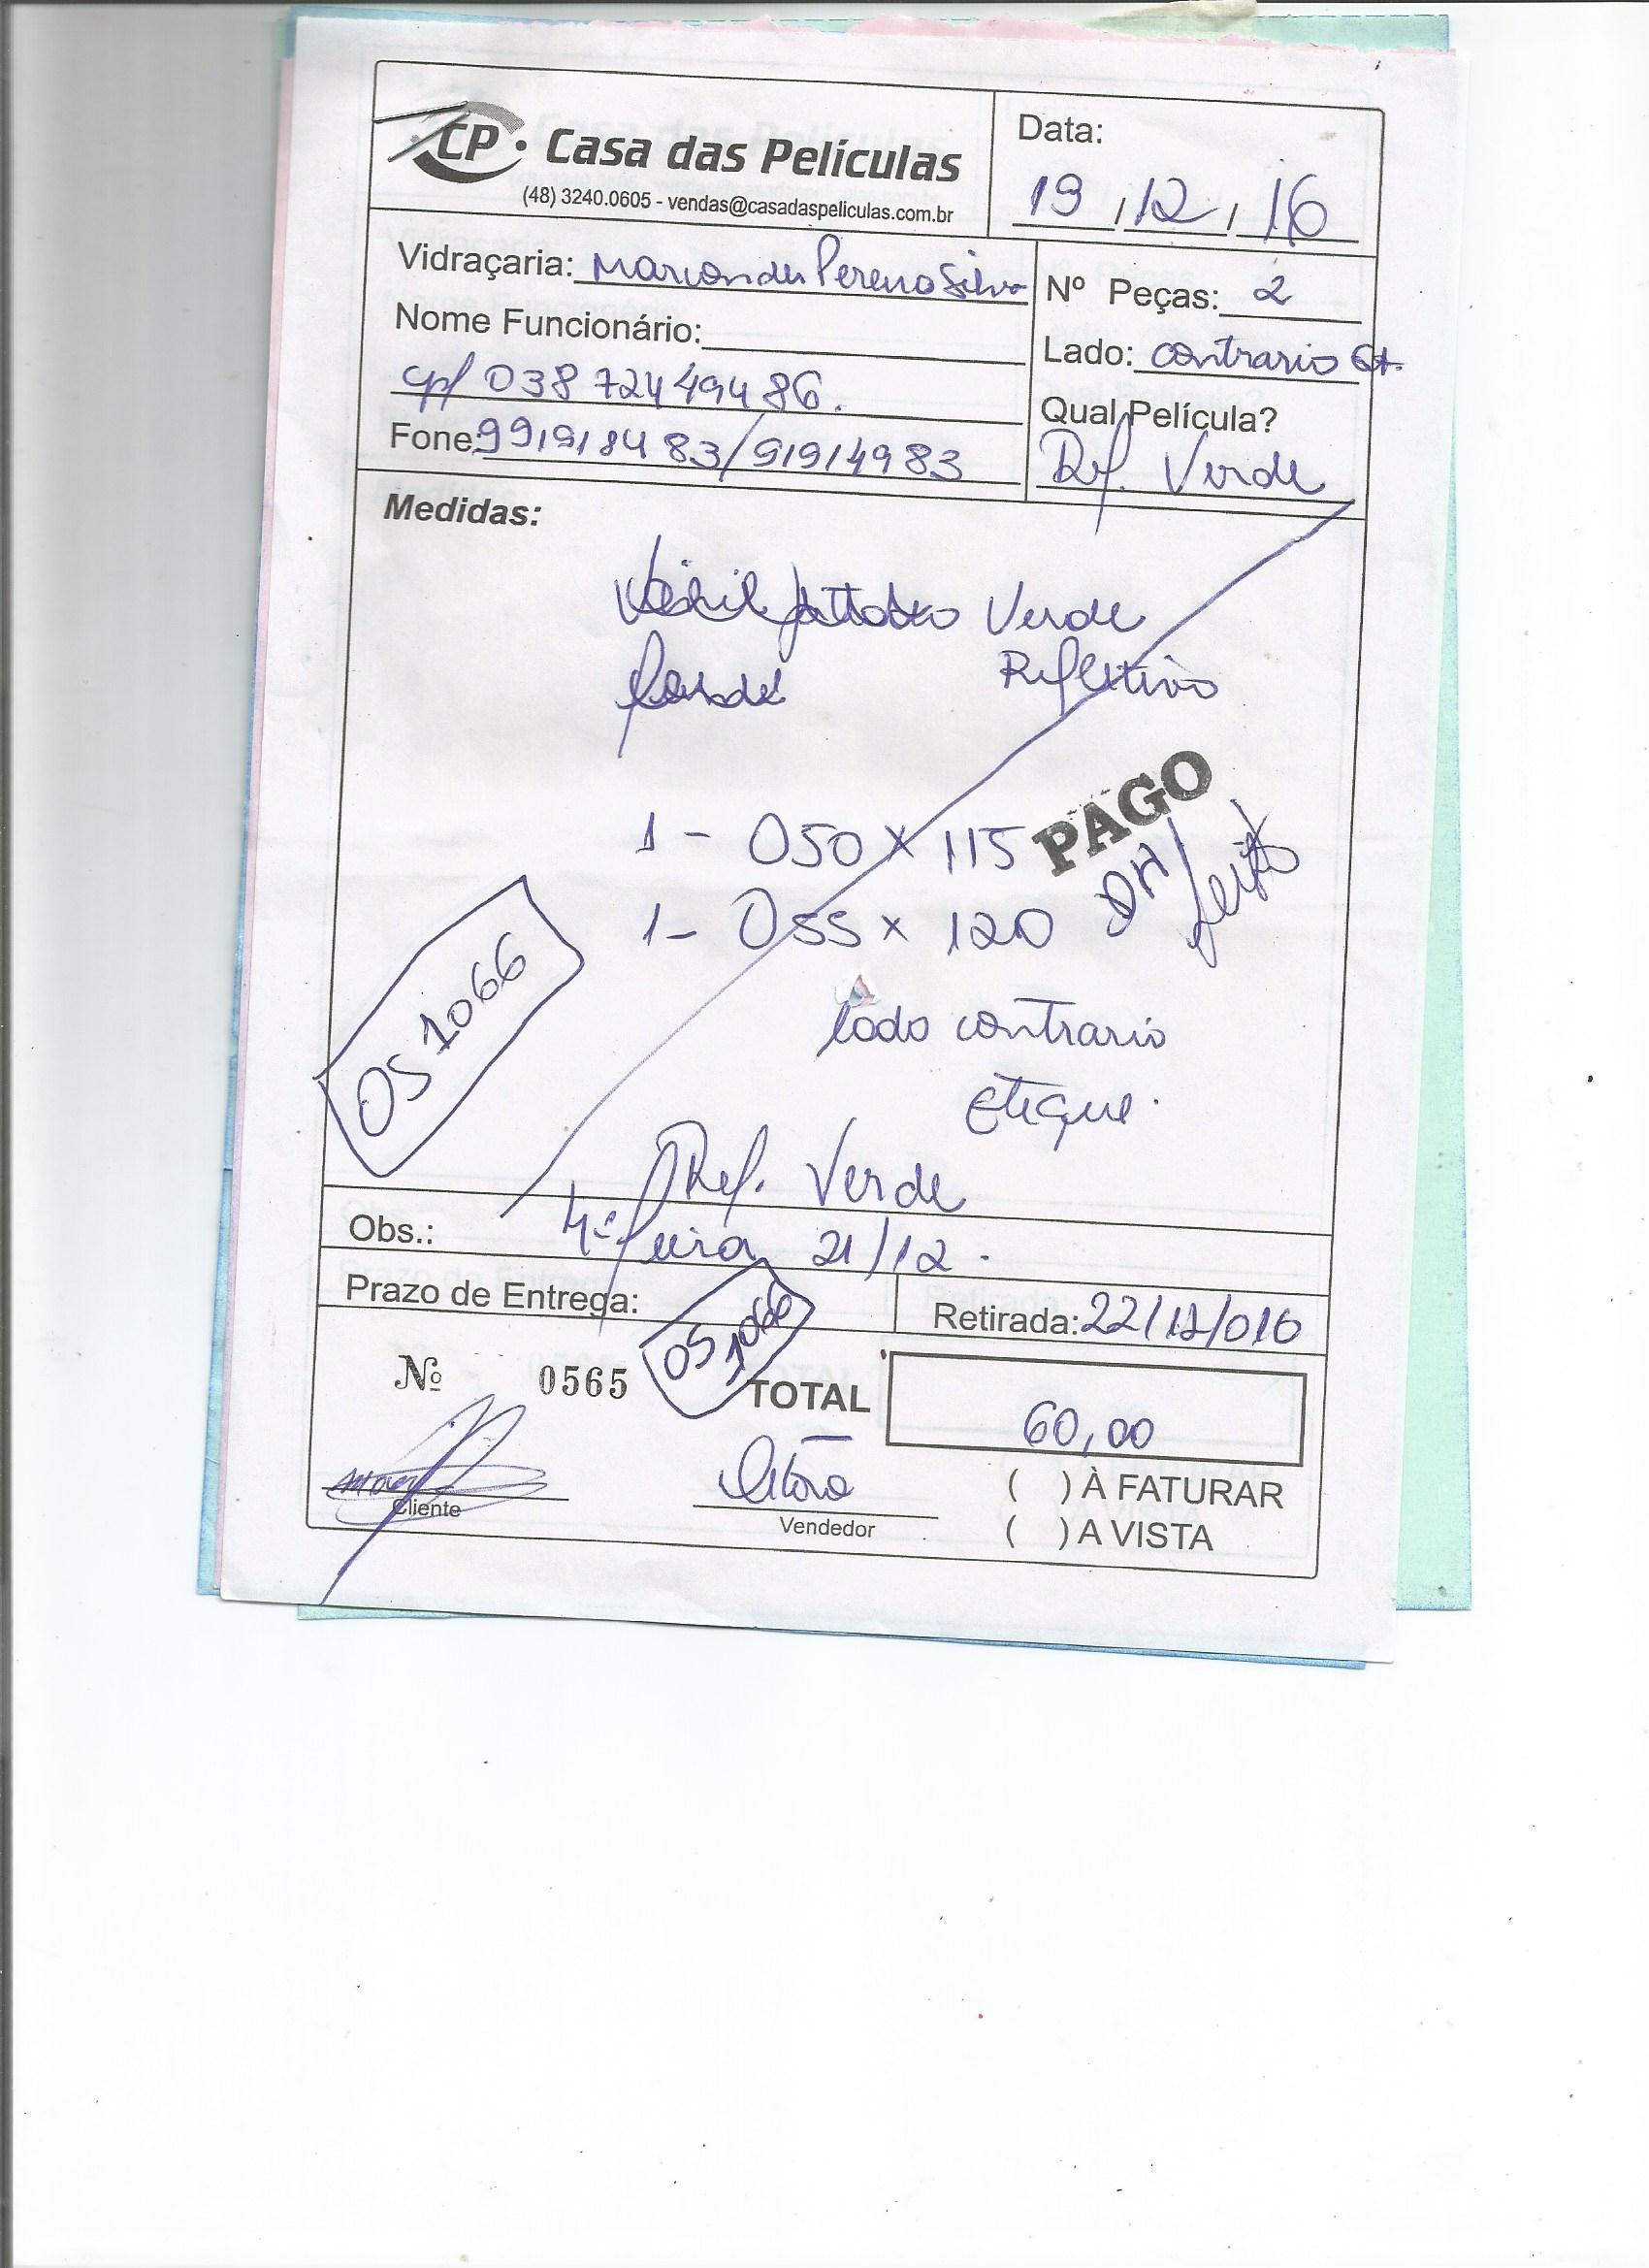 CP • Casa das Películas
(48) 3240.0605 - vendas@casadaspeliculas.com.br
Data:
19 / 12 / 16
Vidraçaria: Silva
Nº Peças: 2
Nome Funcionário:
Lado: contrario Et.
cpf 038 724 494 86.
Qual Película?
Fone: 99191 84 83/91914983
Ref. Verde
Medidas:
Verde
Refletivo
1 - 050 x 115
PAGO
DH feito
1 - 055 x 120
OS 1066
lado contrario
Ref. Verde
Obs.: 4ª feira 21/12.
Prazo de Entrega:
OS 1066
Retirada: 22/12/016
Nº 0565
TOTAL 60,00
Cliente
Vendedor
( ) À FATURAR
( ) A VISTA